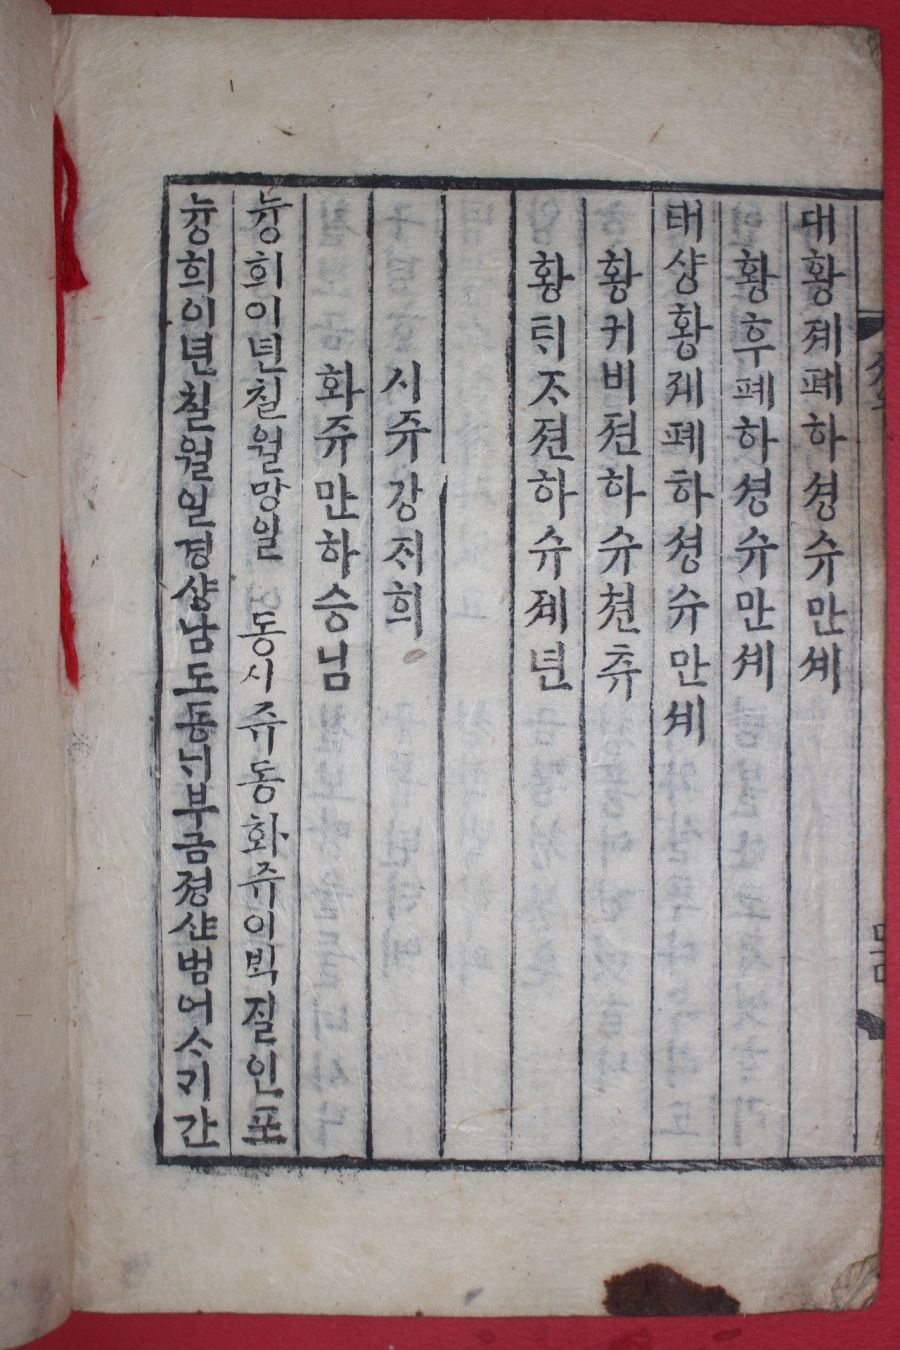 대황졔폐하셩슈만셰
황후폐하셩슈만셰
태샹황졔폐하셩슈만셰
황귀비젼하슈쳔츄
황ᄐᆡᄌᆞ젼하슈졔년
시쥬강지희
화쥬만하승님
늉희이년칠월망일 동시쥬동화쥬이ᄇᆡᆨ질인포
늉희이년칠월일경샹남도동ᄂᆡ부금졍샨범어ᄉᆞ기간